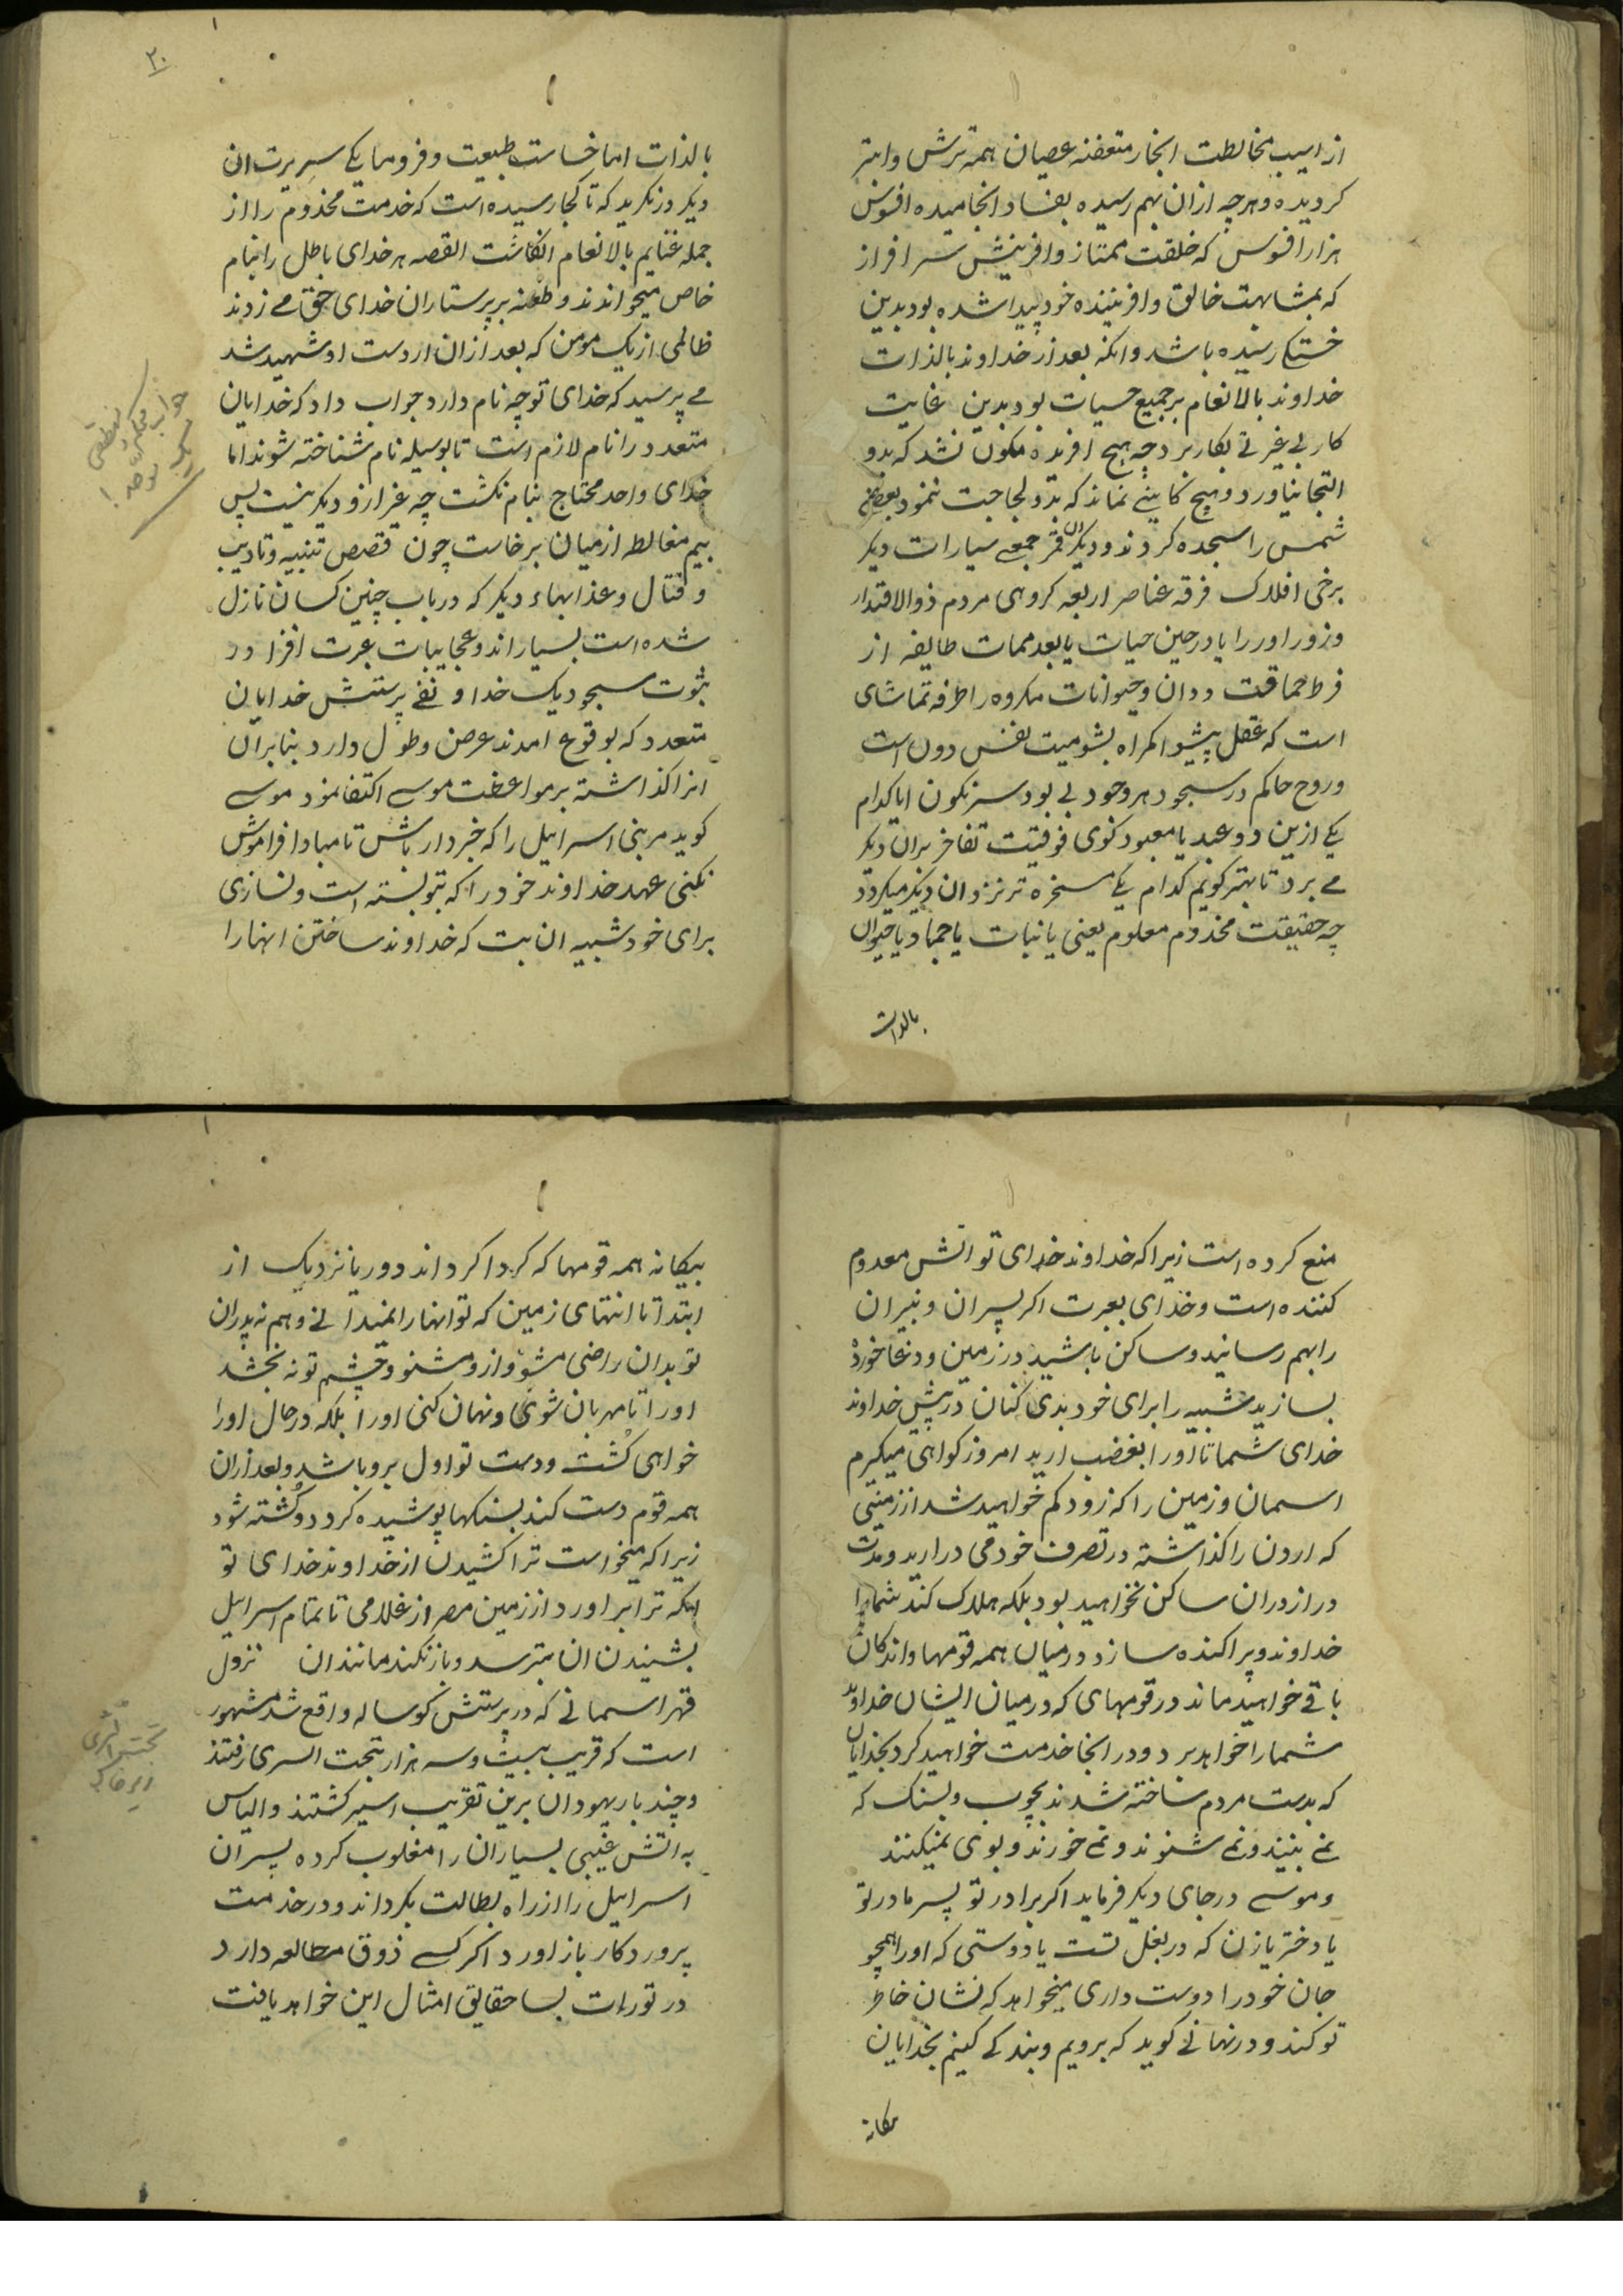 از اسیب مخالطت ابخار متعفنه عصیان همه ترش و ابتر
کردیده و هرچه ازان بهم رسیده بفساد انجامیده افسوس
هزار افسوس که خلقت ممتاز و افرینش سرافراز
که بمشابهت خالق و افریننده خود پیدا شده بود بدین
خستکی رسیده باشد وانکه بعد از خداوند بالذات
خداوند بالانعام بر جمیع حسیات بود بدین غایت
کار بی غیرتی بکار برد چه هیچ افریده مکون نشد که بدو
التجا نیاورد و هیچ کاینی نماند که بدو لجاجت ننمود بعضی
شمس را سجده کردند و دیکران قمر جمعی سیارات دیکر
برخی افلاک فرقه عناصر اربعه کروهی مردم ذوالاقتدار
و زوراور را یا در حین حیات یا بعد ممات طایفه از
فرط حماقت ددان و حیوانات مکروه را طرفه تماشای
است که عقل پیشوا کمراه بشومیت نفس دون است
و روح حاکم در سجود هر وجود بی بود سرنکون ایا کدام
یکی ازین دو عبد یا معبود کوی فوقیت تفاخر بران دیکر
می برد تا بهتر کویم کدام یکی مسخره تر نزد ان دیکر میکردد
چه حقیقت مخدوم معلوم یعنی یا نبات یا جماد یا حیوان
بالذات
۲۰
بالذات اما خساست طبیعت و فرومایکی سریرت ان
دیکر در نکرید که تا کجا رسیده است که خدمت مخدوم را از
جمله غنایم بالانعام انکاشت القصه هر خدای باطل را بنام
خاص میخواندند و طعنه بر پرستاران خدای حق می زدند
ظالمی از یک مومن که بعد ازان از دست او شهید شد
می پرسید که خدای تو چه نام دارد جواب داد که خدایان
متعدد را نام لازم است تا بوسیله نام شناخته شوند اما
خدای واحد محتاج بنام نکشت چه غیر ازو دیکر نیست پس
بیم مغالطه از میان برخاست چون قصص تنبیه و تادیب
و قتال و عذابهاء دیکر که در باب چنین کسان نازل
شده است بسیار اند و عجایبات عبرت افزا در
ثبوت سجود یک خدا و نفی پرستش خدایان
متعدد که بوقوع امدند عرض و طول دارد بنابران
انرا کذاشته بر مواعظت موسی اکتفا نمود موسی
کوید مر بنی اسراییل را که خبردار باش تا مبادا فراموش
نکنی عهد خداوند خود را که بتو بسته است و نسازی
برای خود شبیه ان بت که خداوند ساختن انها را
منع کرده است زیرا که خداوند خدای تو اتش معدوم
کننده است و خدای بعبرت اکر پسران و نبیران
را بهم رسانید و ساکن باشید در زمین و دغا خورده
بسازید شبیه را برای خود بدی کنان در پیش خداوند
خدای شما تا او را بغضب ارید امروز کواهی میکیرم
اسمان و زمین را که زود کم خواهید شد از زمینی
که اردن را کذاشته در تصرف خود می درارید و مدت
دراز دران ساکن نخواهید بود بلکه هلاک کند شما را
خداوند و پراکنده سازد در میان همه قومها و اندکان
باقی خواهید ماند در قومهای که در میان ایشان خداوند
شما را خواهد برد و در انجا خدمت خواهید کرد بخدایان
که بدست مردم ساخته شدند بچوب و بسنک که
نمی بینند و نمی شنوند و نمی خورند و بوی نمیکنند
و موسی در جای دیکر فرماید اکر برادر تو پسر مادر تو
یا دختر یا زن که در بغل تست یا دوستی که او را همچو
جان خود را دوست داری میخواهد که نشان خاطر
تو کند و در نهانی کوید که برویم و بندکی کنیم بخدایان
بیکانه
بیکانه همه قومها که کرداکرد اند دور یا نزدیک از
ابتدا تا انتهای زمین که تو انها را نمیدانی و هم نه پدران
تو بدان راضی مشو و ازو مشنو و چشم تو نه بخشد
او را تا مهربان شوی و نهان کنی او را بلکه در حال او را
خواهی کُشت و دست تو اول برو باشد و بعد ازان
همه قوم دست کند بسنکها پوشیده کردد و کُشته شود
زیرا که میخواست ترا کشیدن از خداوند خدای تو
اینکه ترا براورد از زمین مصر از غلامی تا تمام اسراییل
بشنیدن ان بترسد و باز نکند مانند ان نزول
قهر اسمانی که در پرستش کوساله واقع شد مشهور
است که قریب بیست و سه هزار بتحت الثری رفتند
و چند بار یهودان برین تقریب اسیر کشتند و الیاس
به اتش غیبی بسیاران را مغلوب کرده پسران
اسراییل را از راه بطالت بکرداند و در خدمت
پروردکار باز اورد اکر کسی ذوق مطالعه دارد
در تورات بسا حقایق امثال این خواهد یافت
تحت الثری
زیر خاک